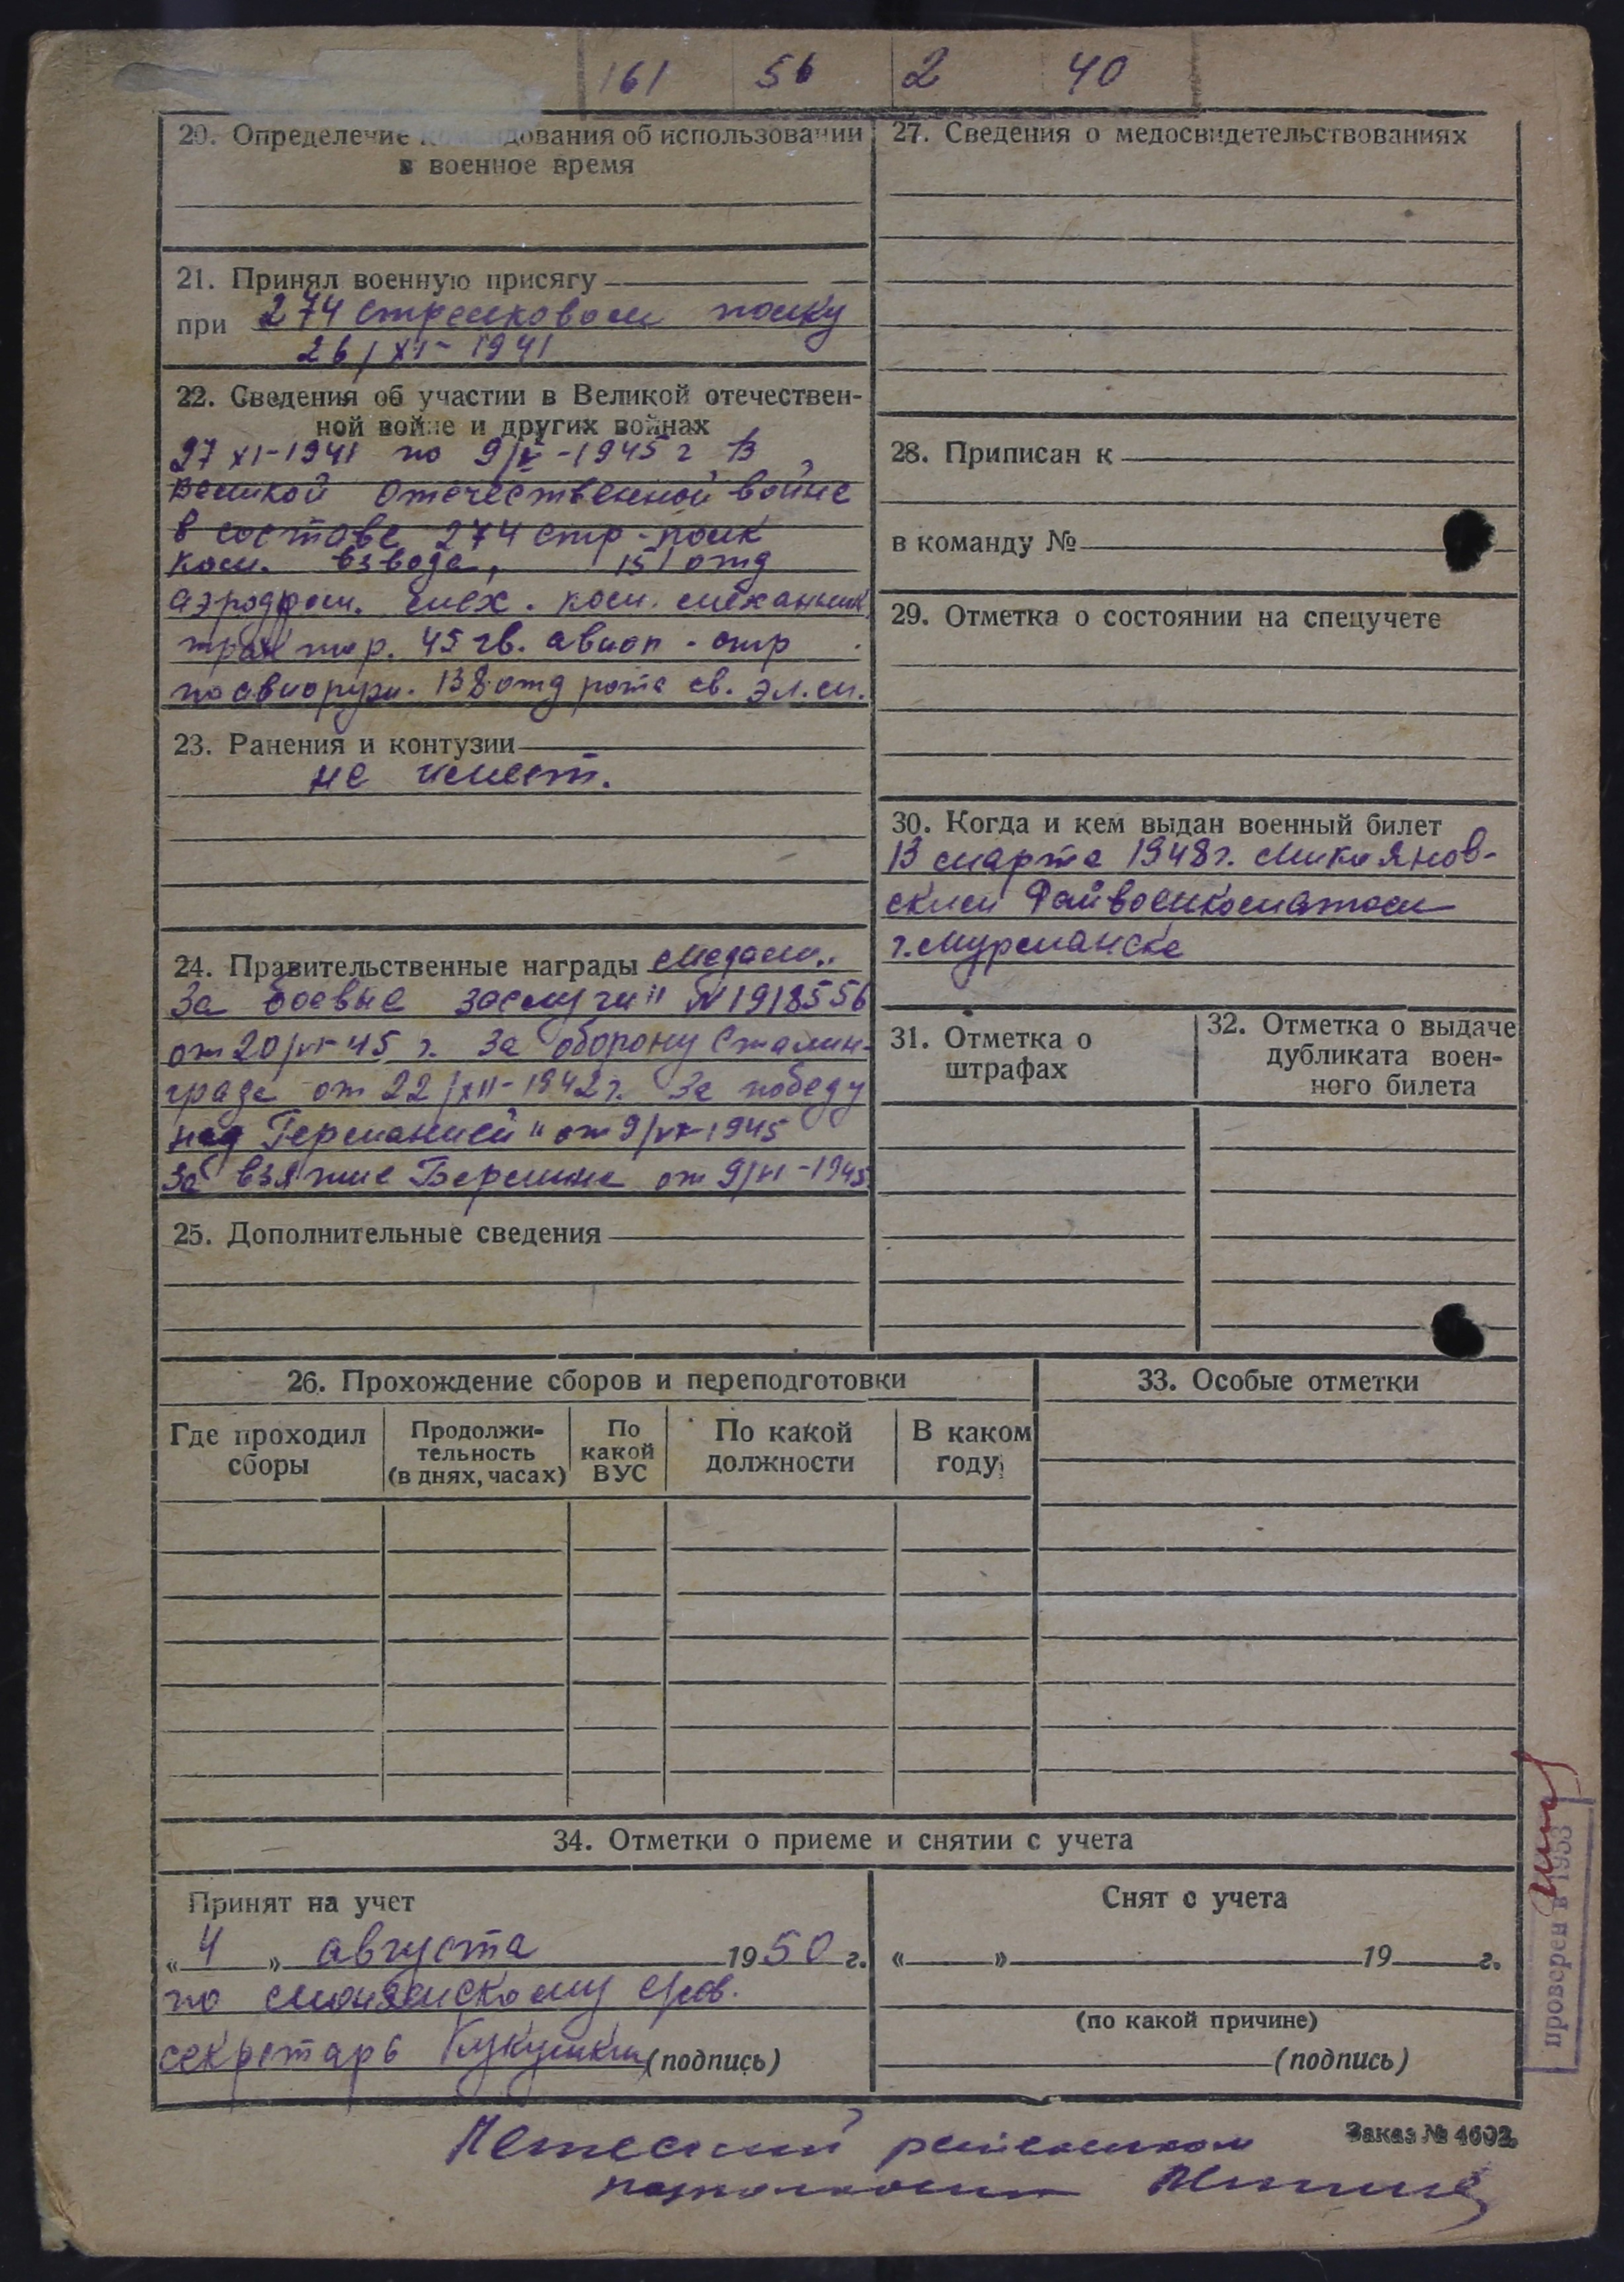 161 56 2 40
20. Определение командования об использовании
в военное время
21. Принял военную присягу
при 274 стрелковом полку
26/XI-1941
22. Сведения об участии в Великой отечествен-
ной войне и других войнах
27 XI-1941 по 9/V-1945 г в
Великой Отечественной войне
в составе 274 стр-полк
ком. взвода, 151 отд
аэродром. тех. ком. механик
трактор. 45 гв. авиап - стр
по авиоруж. 138 отд рота св. эл.м.
23. Ранения и контузии
не имеет.
24. Правительственные награды медаль „
За боевые заслуги" N1918556
от 20/VI-45 г. За оборону Сталин-
града от 22/XII-1942 г. За победу
над Германией" от 9/V-1945
За взятие Берлина от 9/VI-1945
25. Дополнительные сведения
27. Сведения о медосвидетельствованиях
28. Приписан к
в команду №
29. Отметка о состоянии на спецучете
30. Когда и кем выдан военный билет
13 марта 1948г. Микоянов-
ским Райвоенкоматом
г. Мурманска
31. Отметка о
штрафах
32. Отметка о выдаче
дубликата воен-
ного билета
26. Прохождение сборов и переподготовки
Где проходил
сборы
Продолжи-
тельность
(в днях, часах)
По
какой
ВУС
По какой
должности
В каком
году
33. Особые отметки
34. Отметки о приеме и снятии с учета
Принят на учет
„ 4 " августа 1950 г.
по
секретарь Кукушкин (подпись)
Снят с учета
« » 19 г.
(по какой причине)
(подпись)
проверен в 1953
Заказ № 4602.